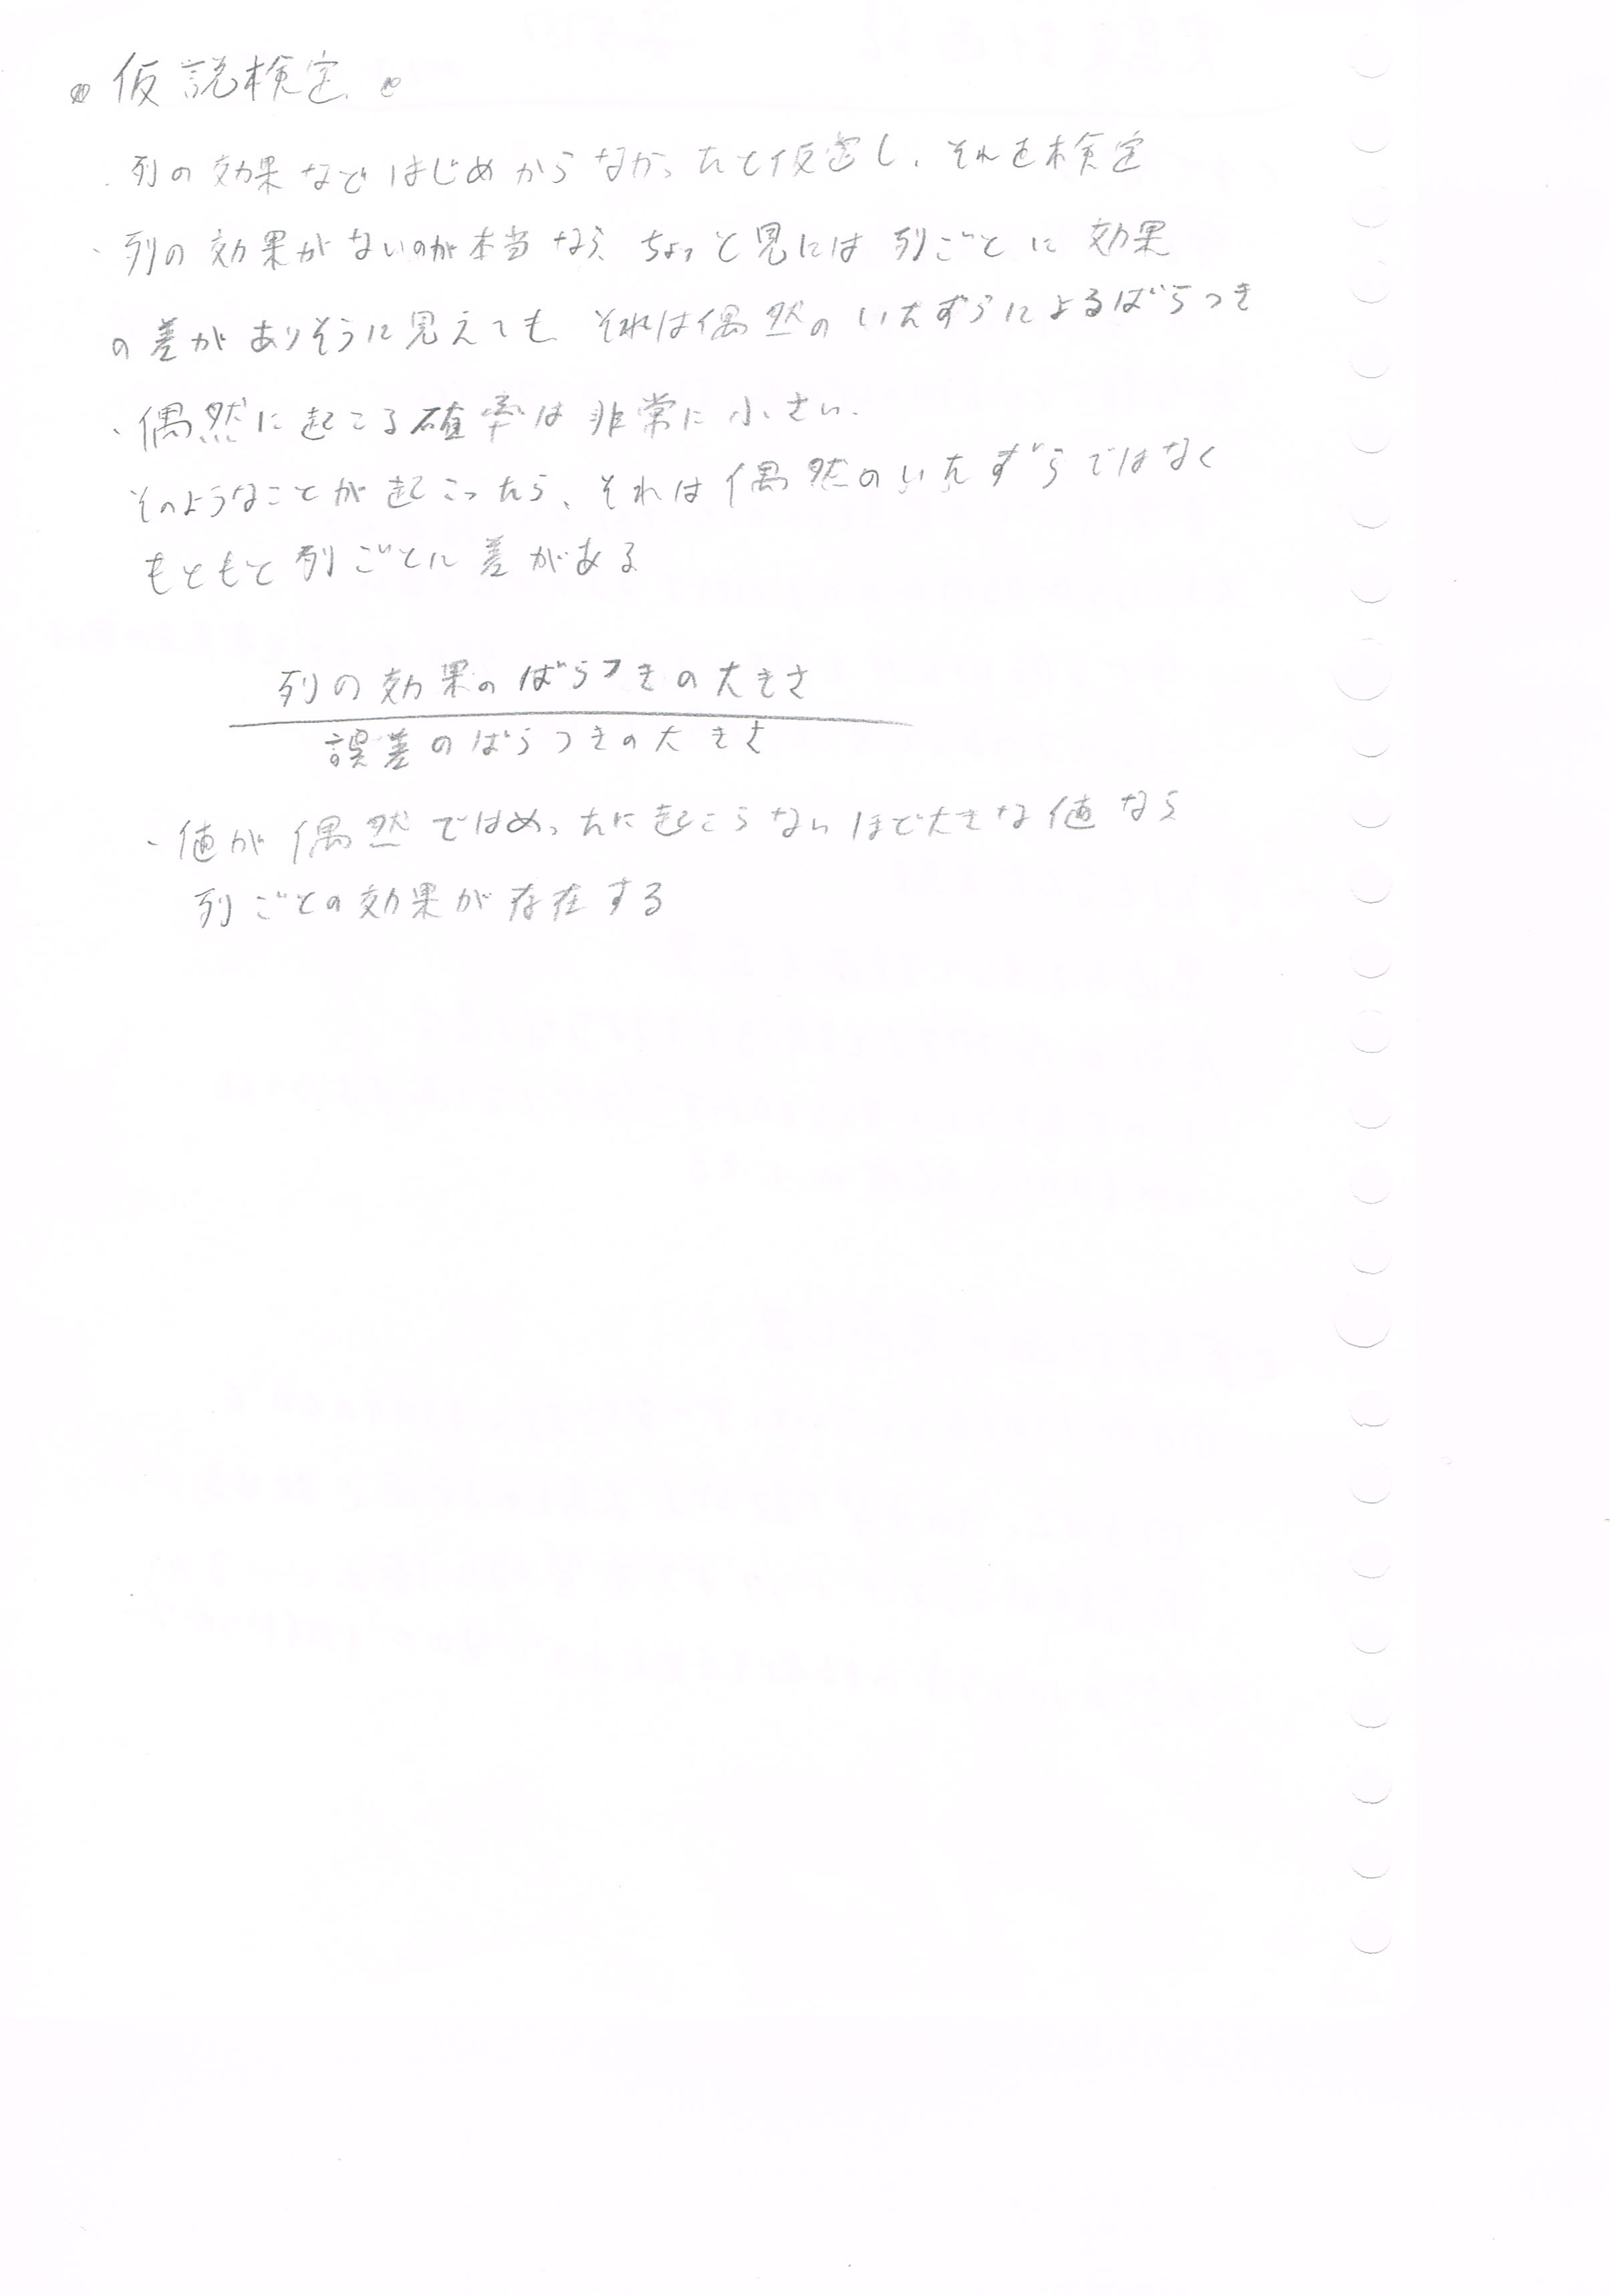 仮説検定
・列の効果などはじめからなかったと仮定し、それを検定
・列の効果がないのが本当なら、ちょっと見には列ごとに効果
の差がありそうに見えても それは偶然のいたずらによるばらつき
・偶然に起こる確率は非常に小さい.
そのようなことが起こったら、それは偶然のいたずらではなく
もともと列ごとに差がある
列の効果のばらつきの大きさ
誤差のばらつきの大きさ
・値が偶然ではめったに起こらないほど大きな値なら
列ごとの効果が存在する